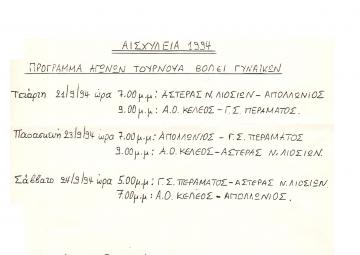 ΑΙΣΧΥΛΕΙΑ 1994
ΠΡΟΓΡΑΜΜΑ ΑΓΩΝΩΝ ΤΟΥΡΝΟΥΑ ΒΟΛΕΙ ΓΥΝΑΙΚΩΝ
Τετάρτη 21/9/94 ώρα 7.00 μ.μ: ΑΣΤΕΡΑΣ Ν. ΛΙΟΣΙΩΝ - ΑΠΟΛΛΩΝΙΟΣ
9.00 μ.μ: Α.Ο. ΚΕΛΕΟΣ - Γ.Σ. ΠΕΡΑΜΑΤΟΣ.
Παρασκευή 23/9/94 ώρα 7.00 μ.μ: ΑΠΟΛΛΩΝΙΟΣ - Γ.Σ. ΠΕΡΑΜΑΤΟΣ
9.00 μ.μ: Α.Ο. ΚΕΛΕΟΣ - ΑΣΤΕΡΑΣ Ν. ΛΙΟΣΙΩΝ.
Σάββατο 24/9/94 ώρα 5.00 μ.μ: Γ.Σ. ΠΕΡΑΜΑΤΟΣ - ΑΣΤΕΡΑΣ Ν. ΛΙΟΣΙΩΝ
7.00 μ.μ: Α.Ο. ΚΕΛΕΟΣ - ΑΠΟΛΛΩΝΙΟΣ.